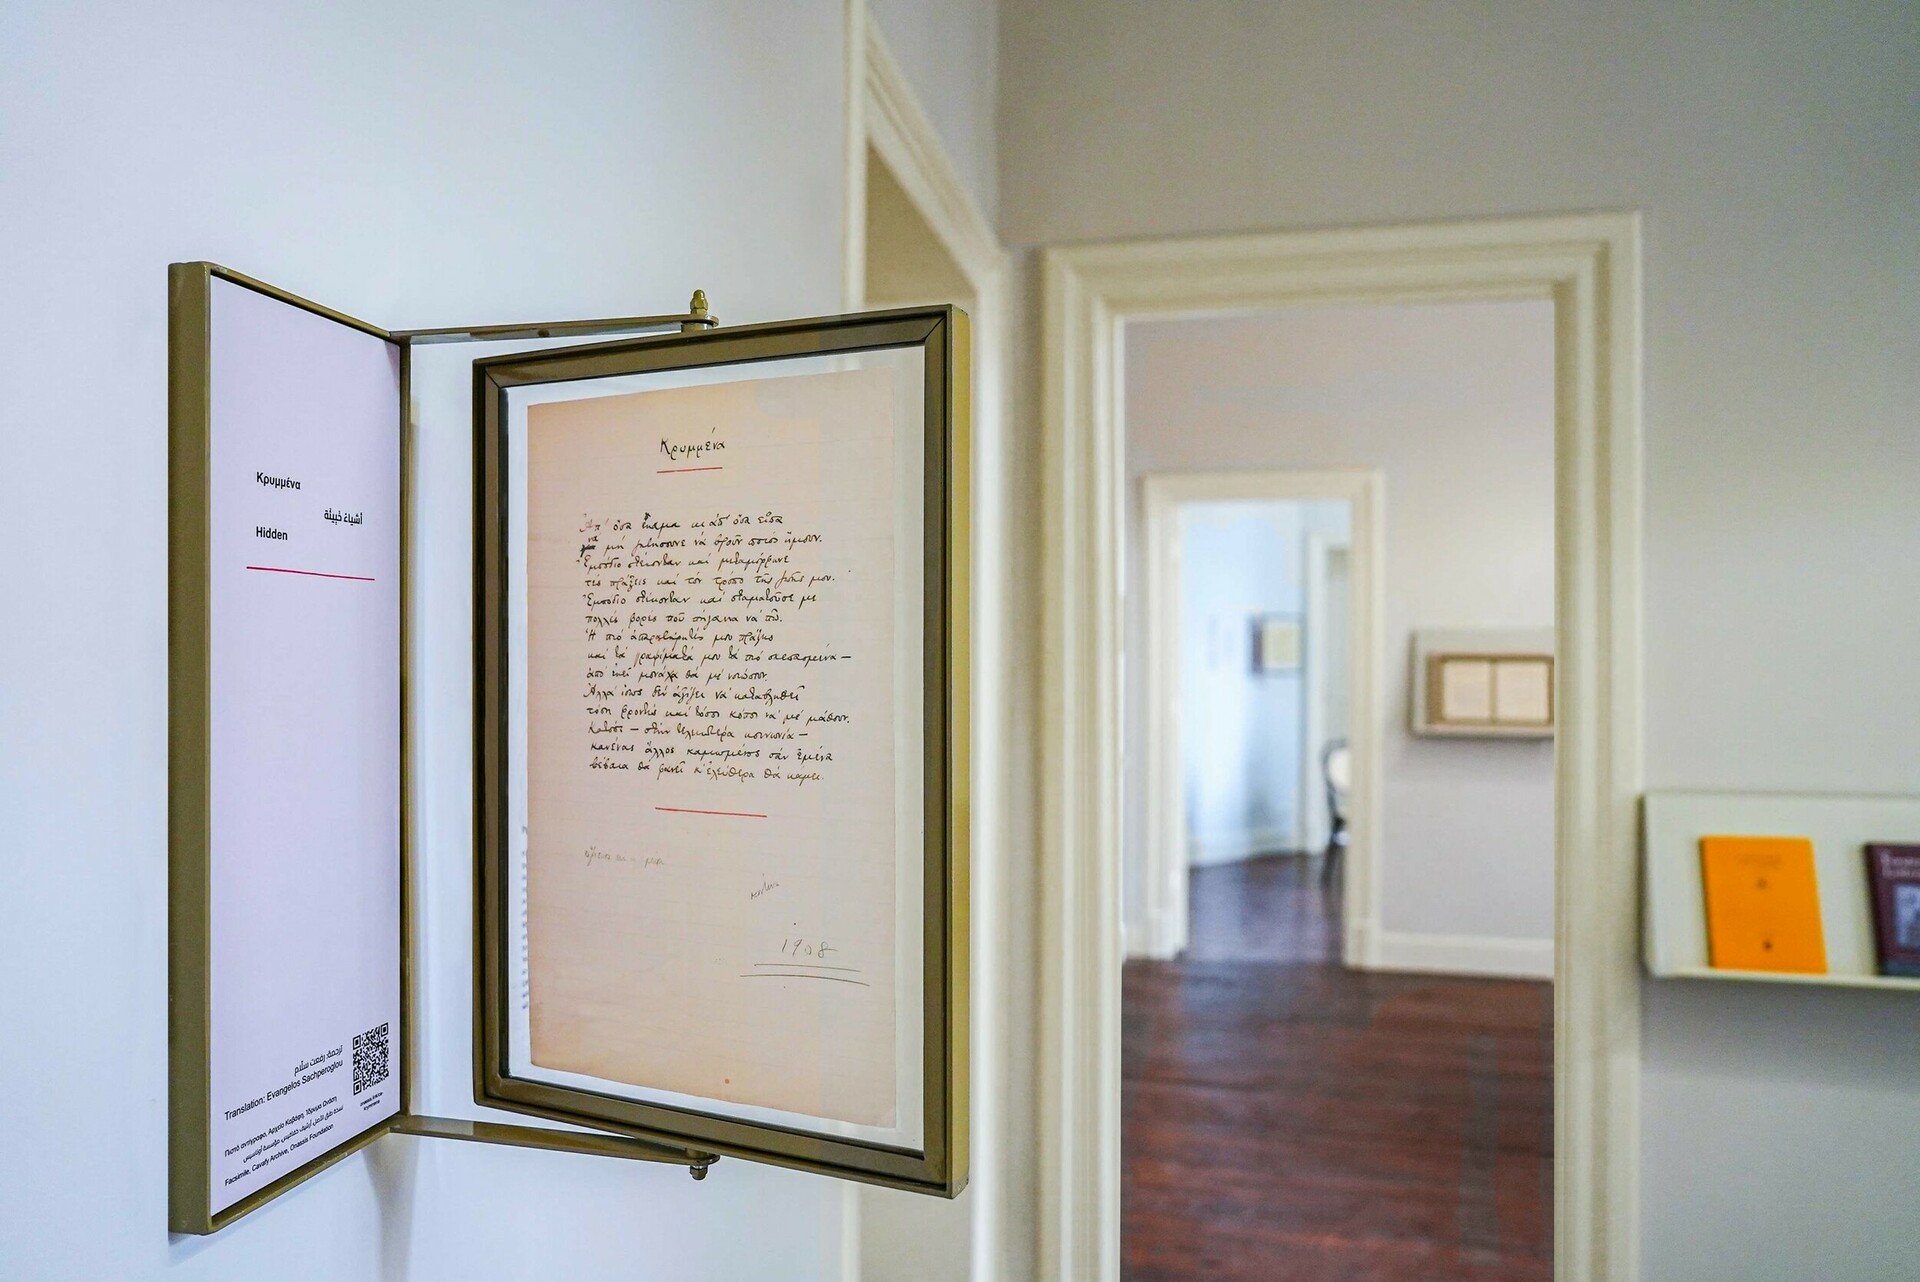 Κρυμμένα
أشياءٌ خَبِيئَة
Hidden
ترجمة: رفعت سلّام
Translation: Evangelos Sachperoglou
Πιστό αντίγραφο, Αρχείο Καβάφη, Ίδρυμα Ωνάση
نسخة طبق الأصل، أرشيف كفافيس، مؤسسة أوناسيس
Facsimile, Cavafy Archive, Onassis Foundation
Κρυμμένα
Ἀπ' ὅσα ἔκαμα κι ἀπ' ὅσα εἶπα
νὰ μὴ ζητήσουνε νὰ βροῦν ποιὸς ἤμουν.
Ἐμπόδιο στέκονταν καὶ μεταμόρφωνε
τὲς πράξεις καὶ τὸν τρόπο τῆς ζωῆς μου.
Ἐμπόδιο στέκονταν καὶ σταματοῦσε με
πολλὲς φορὲς ποῦ πήγαινα νὰ πῶ.
Ἡ πιὸ ἀπαρατήρητές μου πράξεις
καὶ τὰ γραψίματά μου τὰ πιὸ σκεπασμένα —
ἀπὸ ἐκεῖ μονάχα θὰ μὲ νοιώσουν.
Ἀλλὰ ἴσως δὲν ἀξίζει νὰ καταβληθεῖ
τόση φροντὶς καὶ τόσος κόπος νὰ μὲ μάθουν.
Κατόπι — στὴν τελειοτέρα κοινωνία —
κανένας ἄλλος καμωμένος σὰν ἐμένα
βέβαια θὰ φανεῖ κ' ἐλεύθερα θὰ κάμει.
1908